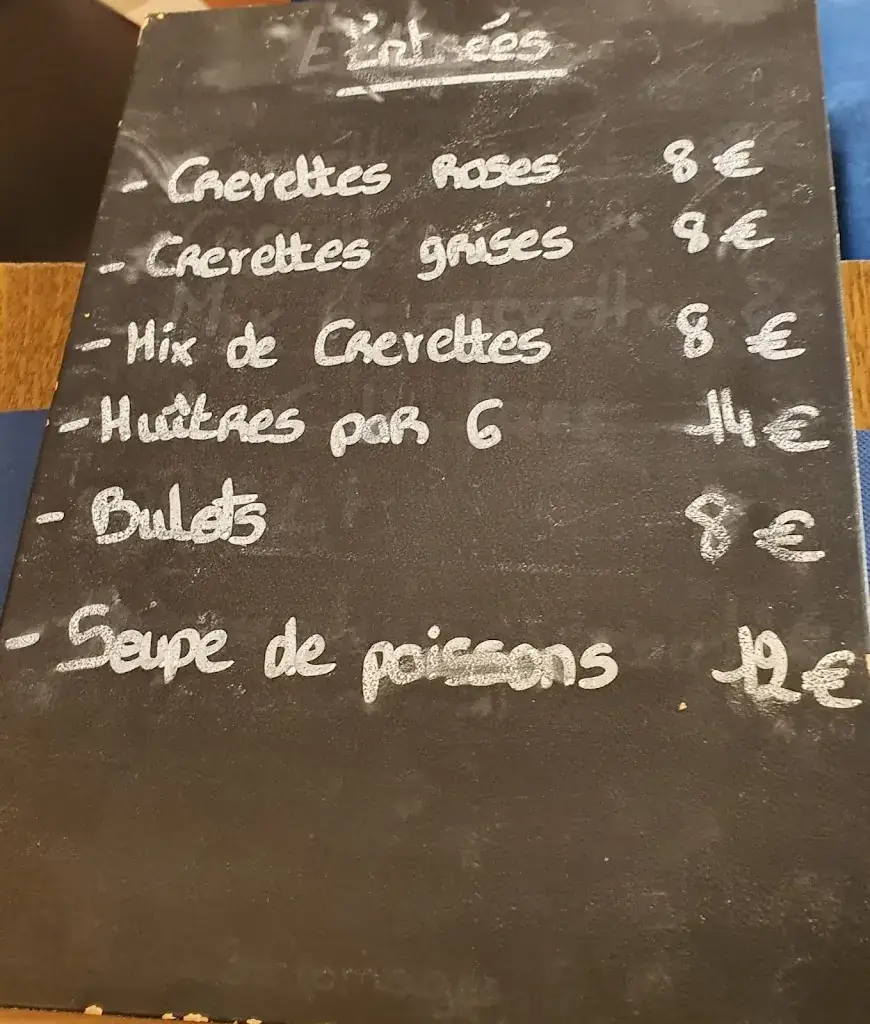 Entrées
- Crevettes Roses 8 €
- Crevettes grises 8 €
- Mix de Crevettes 8 €
- Huîtres par 6 14 €
- Bulots 8 €
- Soupe de poissons 12 €